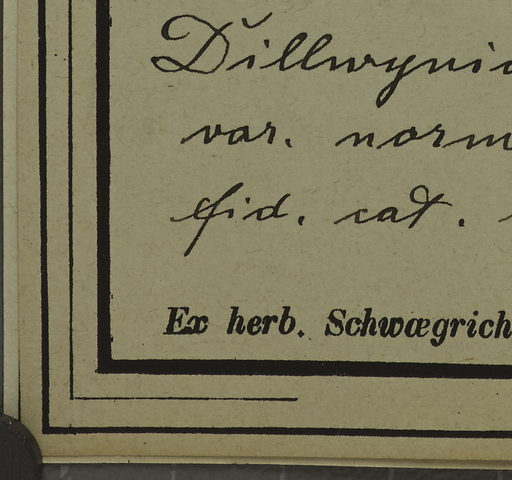 Dillwynia
var. norm
fid. cat.
Ex herb. Schwægrich